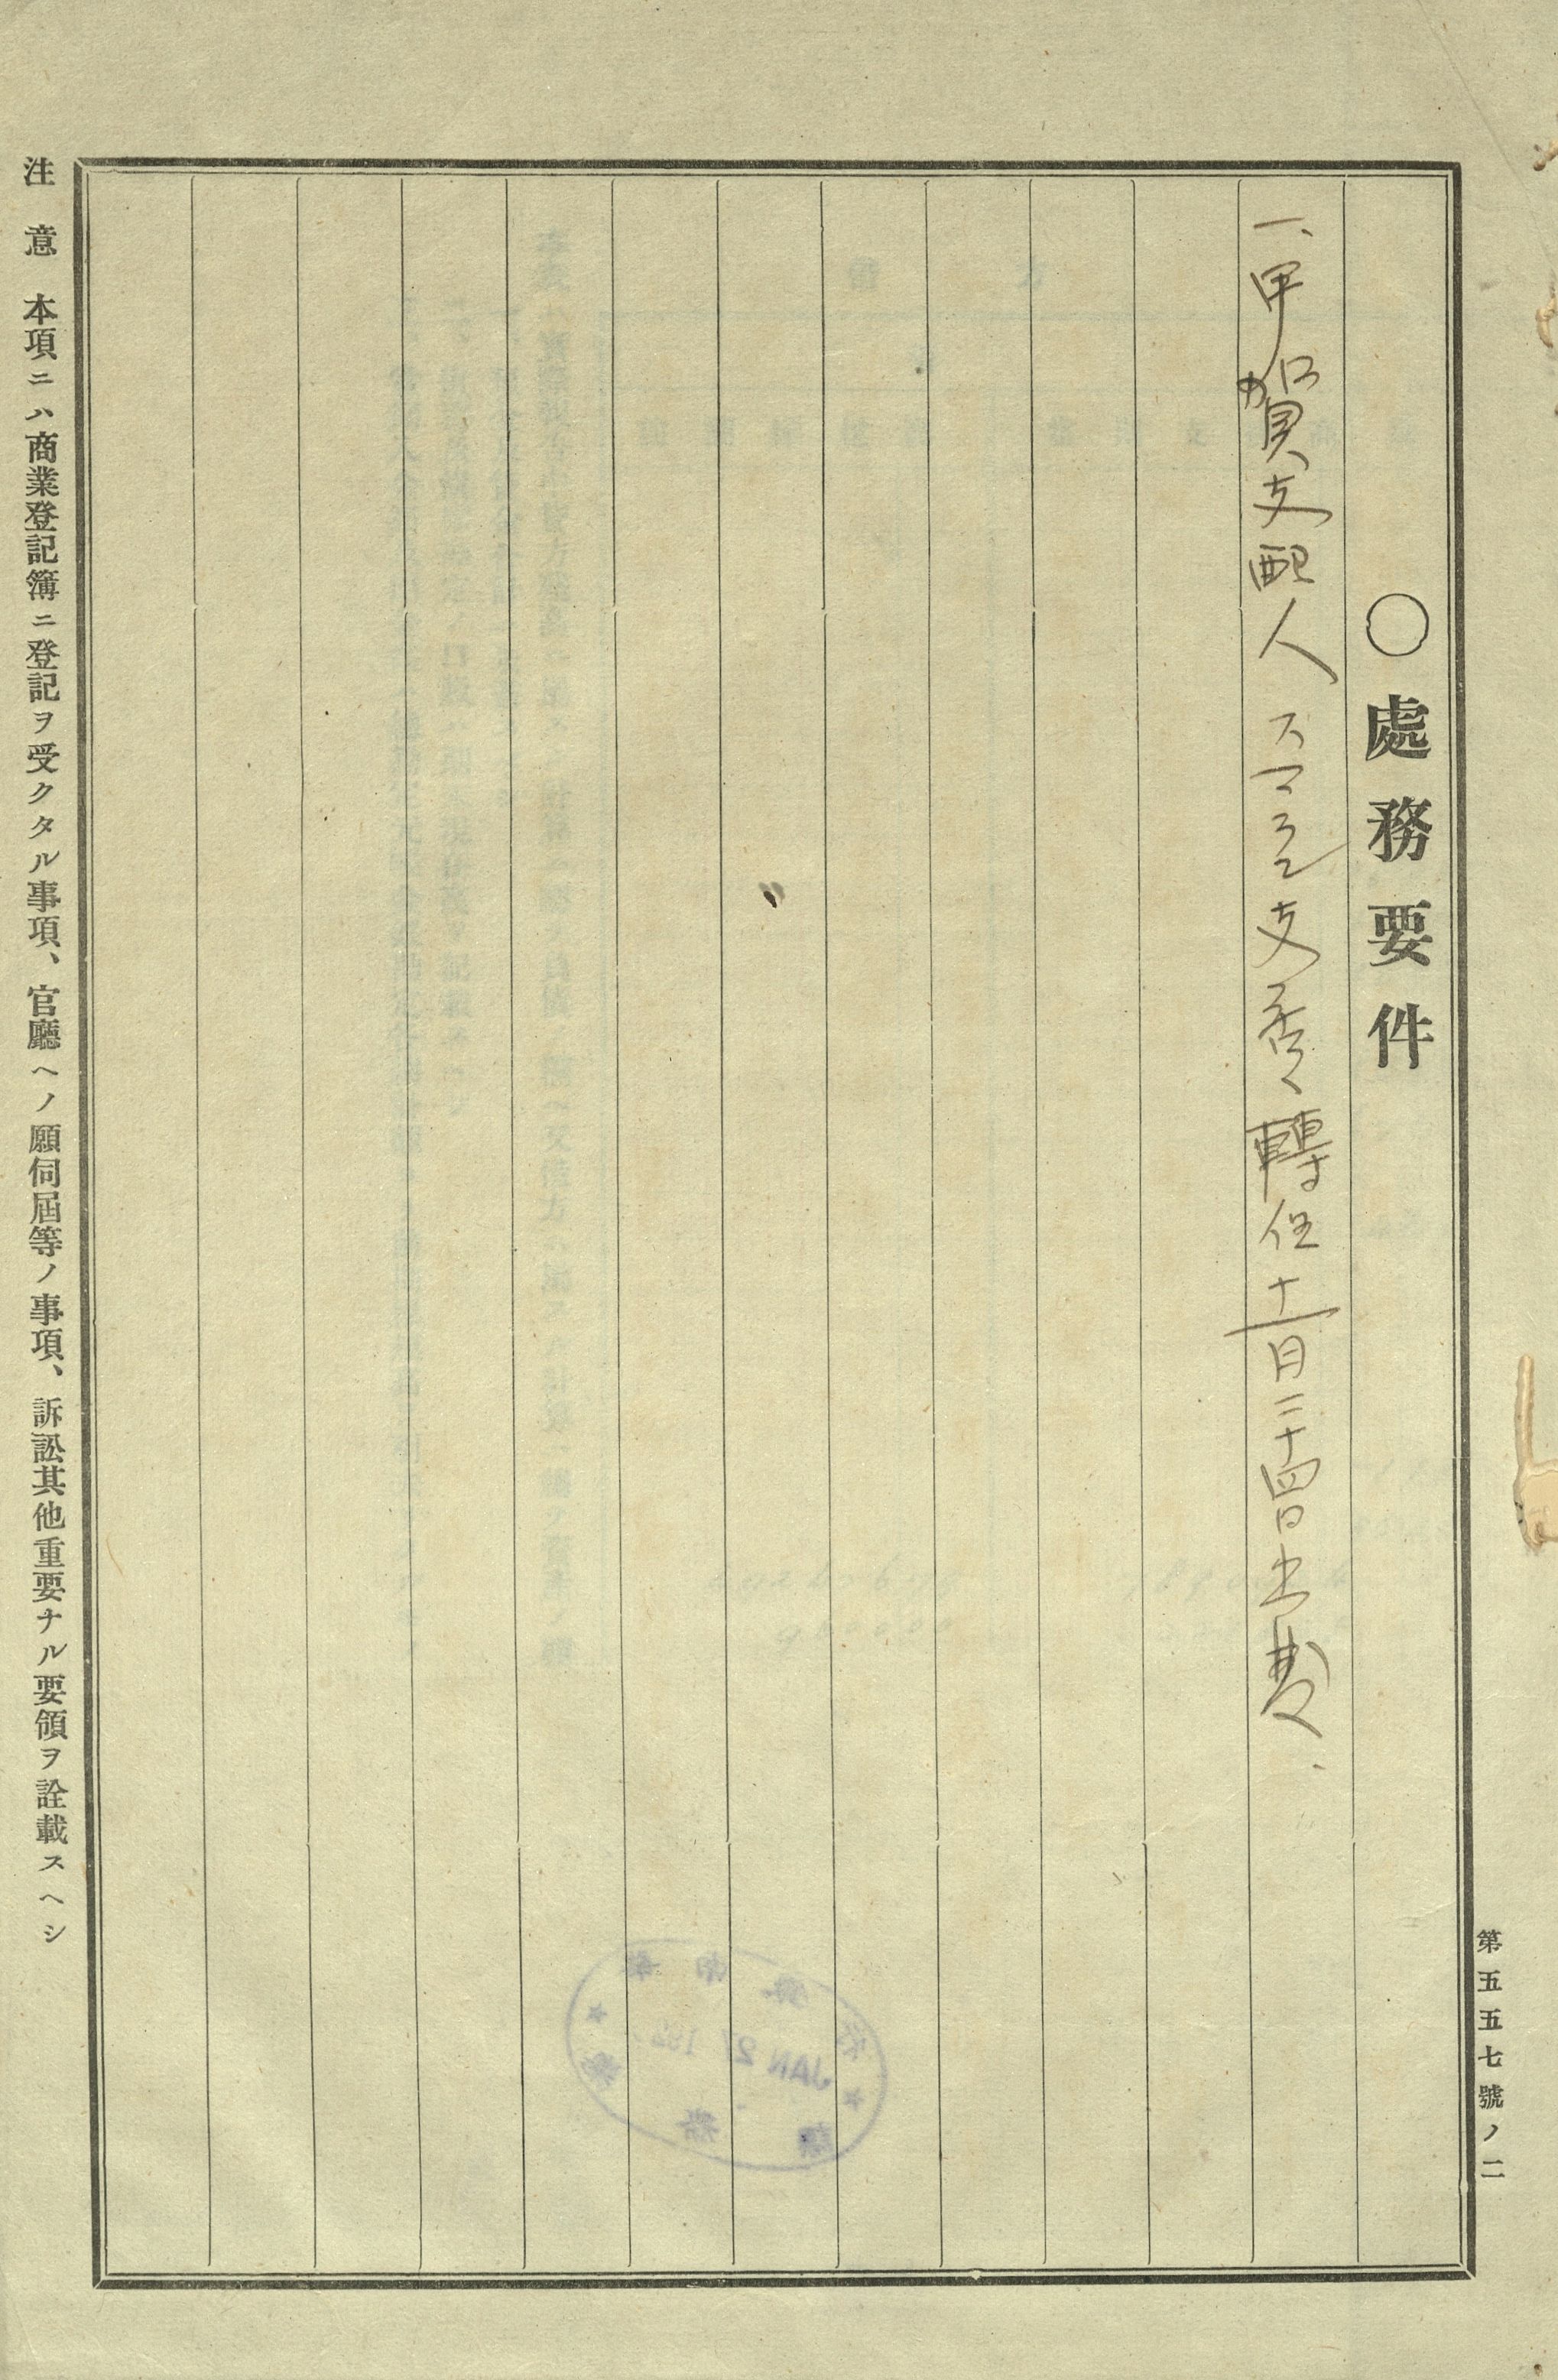 第五五七號ノ二
〇處務要件
一、甲賀支配人スマラン支店ヘ轉任十一月二十四日出發、
注意 本項ニハ商業登記簿ニ登記ヲ受クタル事項、官廳ヘノ願伺屆等ノ事項、訴訟其他重要ナル要領ヲ詮載スヘシ